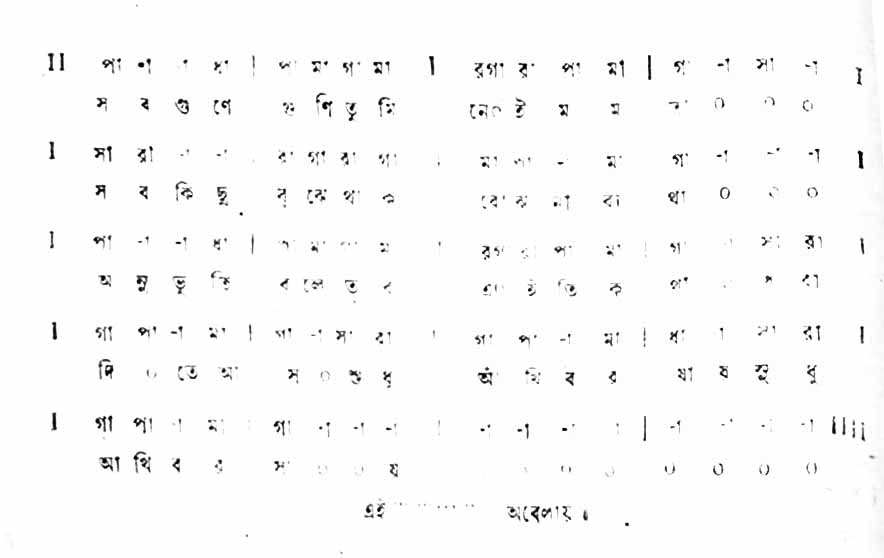 II পা -া -া ধা | পা মা গা মা I রগা রা পা মা | গা -া সা -া I
স ব গু ণে গু ণি তু মি নে০ ই ম ম তা ০ ০ ০
I সা রা -া -া রা গা রা গা মা পা -া মা গা -া -া -া I
স ব কি ছু বু ঝে থা ক বো ঝ না ব্য থা ০ ০ ০
I পা -া -া ধা | পা মা পা ম রগা রা পা মা | গা -া সা রা I
অ নু ভূ তি ব লে ত ব ই তি ক থা রা
I গা পা -া মা | গা -া সা রা গা পা -া মা | ধা -া সা রা I
দি ০ তে আ স ০ শু ধু আঁ খি ব র ষা য সু ধু
I গা পা -া মা গা -া -া -া -া -া -া -া | -া -া -া -া IIII
আ খি ব র সা ০ ০ য ০ ০ ০ ০ ০ ০ ০
এই অবেলায় ।